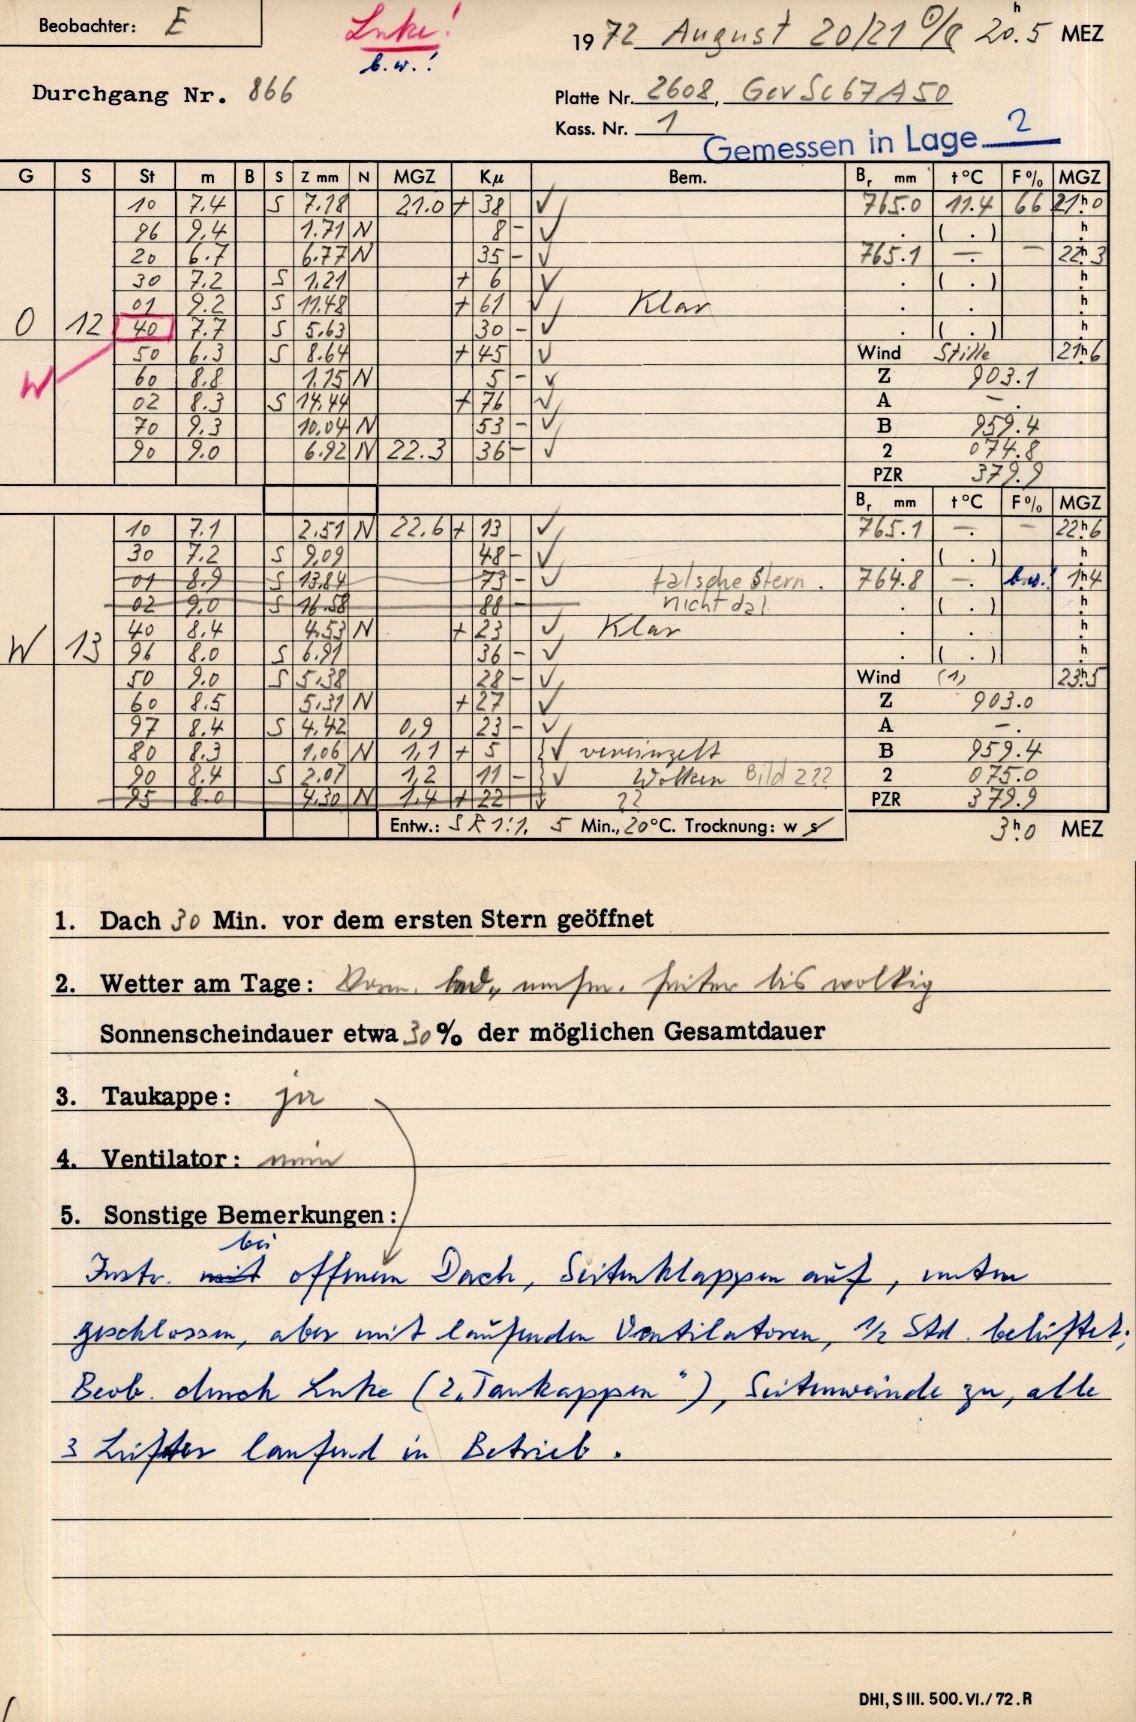 Beobachter: E
Luke!
b.w.!
1972 August 20/21 20h.5 MEZ
Durchgang Nr. 866
Platte Nr. 2608, GevSc67A50
Kass. Nr. 1
Gemessen in Lage 2
G S St m B S Z mm N MGZ Kμ Bem. Br mm t °C F % MGZ
10 7.4 S 7.18 21.0 + 38 ✓ 765.0 11.4 66 21h0
96 9.4 1.71 N 8 - ✓ . ( . ) h
20 6.7 6.77 N 35 - ✓ 765.1 —. — 22h3
30 7.2 S 1.21 + 6 ✓ . ( . ) h
01 9.2 S 11.48 + 61 ✓ Klar . . h
O 12 40 7.7 S 5.63 30 - ✓ . ( . ) h
50 6.3 S 8.64 + 45 ✓ Wind Stille 21h6
W 60 8.8 1.15 N 5 - ✓ Z 903.1
02 8.3 S 14.44 + 76 ✓ A — .
70 9.3 10.04 N 53 - ✓ B 959.4
90 9.0 6.92 N 22.3 36 - ✓ 2 074.8
PZR 379.9
Br mm t °C F % MGZ
10 7.1 2.51 N 22.6 + 13 ✓ 765.1 —. — 22h6
30 7.2 S 9.09 48 - ✓ . ( . ) h
01 8.9 S 13.84 73 - ✓ falsche Stern. 764.8 —. b.w.! 1h4
02 9.0 S 16.58 88 - nicht da! . ( . ) h
40 8.4 4.53 N + 23 ✓ Klar . . h
W 13 96 8.0 S 6.91 36 - ✓ . ( . ) h
50 9.0 S 5.38 28 - ✓ Wind (1) 23h5
60 8.5 5.31 N + 27 ✓ Z 903.0
97 8.4 S 4.42 0,9 23 - ✓ A —.
80 8.3 1.06 N 1,1 + 5 ✓ vereinzelt B 959.4
90 8.4 S 2.07 1,2 11 - ✓ Wolken Bild 2?? 2 075.0
95 8.0 4.30 N 1.4 + 22 ✓ ?? PZR 379.9
Entw.: SR 1:1, 5 Min., 20 °C. Trocknung: w s 3h.0 MEZ
1. Dach 30 Min. vor dem ersten Stern geöffnet
2. Wetter am Tage: Vorm. bed., nachm. heiter bis wolkig
Sonnenscheindauer etwa 30 % der möglichen Gesamtdauer
3. Taukappe: ja
4. Ventilator: nein
5. Sonstige Bemerkungen:
bei
Instr. mit offenem Dach, Seitenklappen auf, unten
geschlossen, aber mit laufenden Ventilatoren, 1/2 Std. belüftet;
Beob. durch Luke (2 „Taukappen"), Seitenwände zu, alle
3 Lüfter laufend in Betrieb.
DHI, S III. 500. VI./72. R